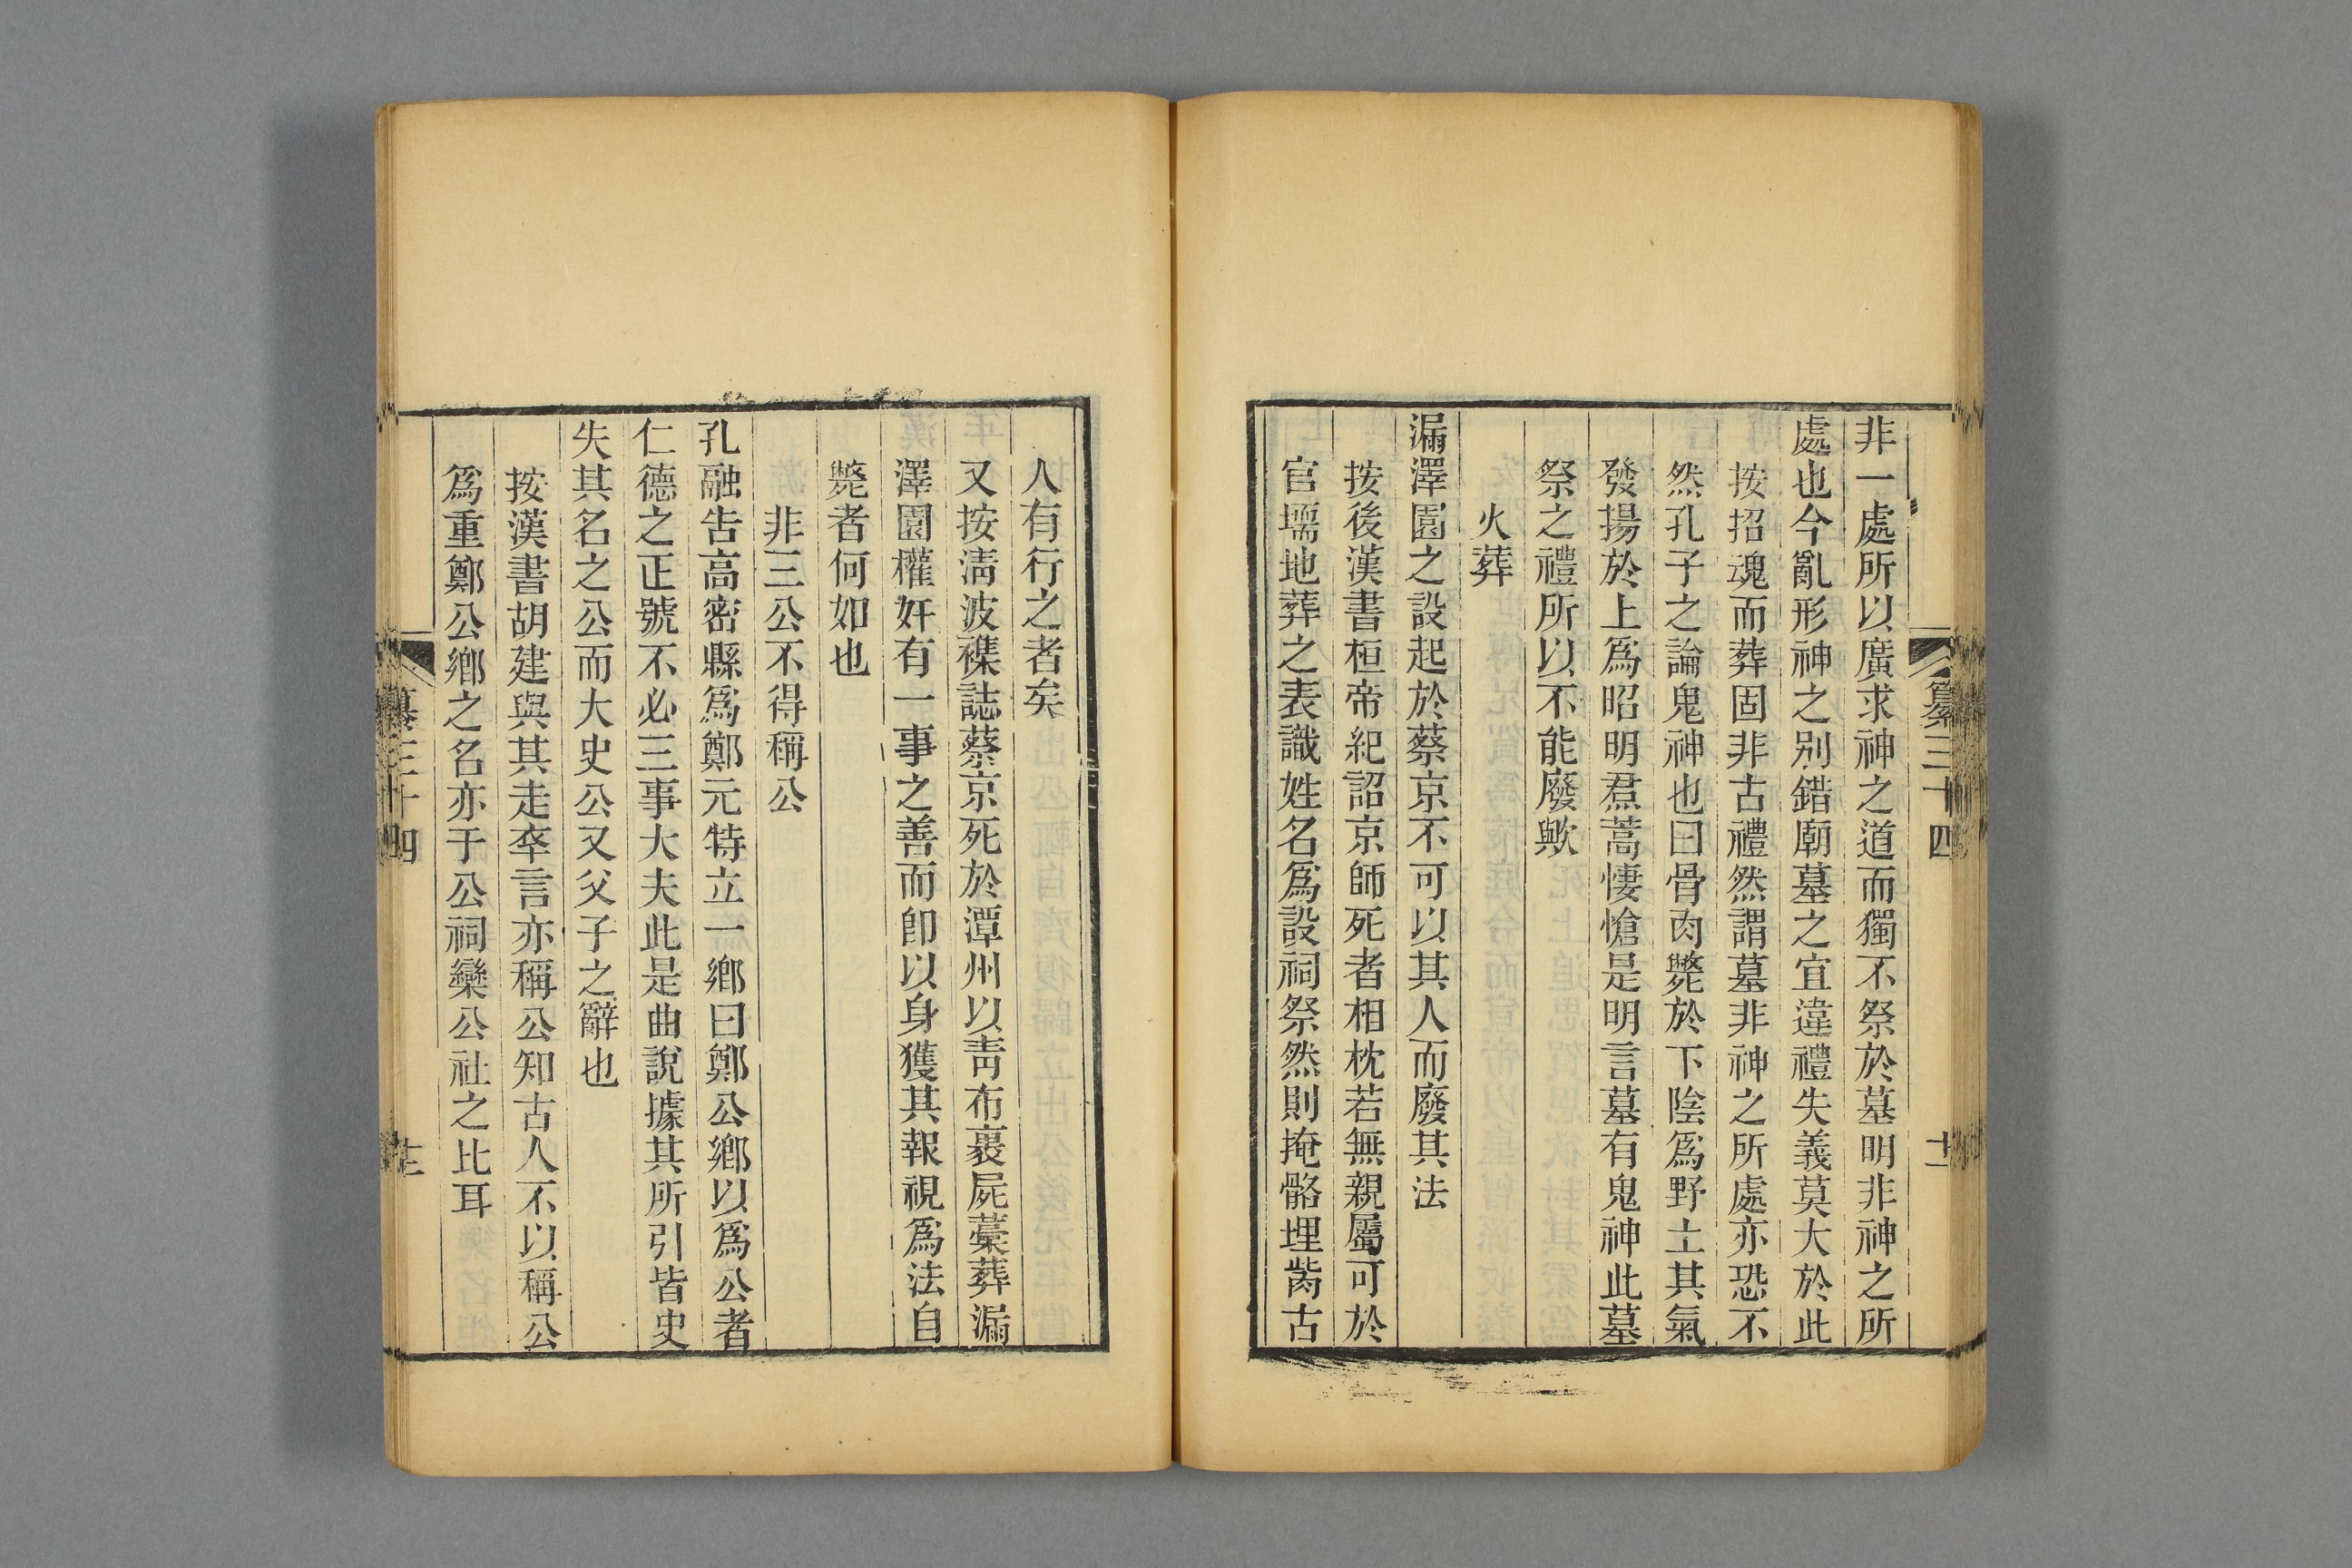 纂三十四
十二
非一處所以廣求神之道而獨不祭於墓明非神之所
處也今亂形神之別錯廟墓之宜違禮失義莫大於此
按招魂而葬固非古禮然謂墓非神之所處亦恐不
然孔子之論鬼神也曰骨肉斃於下陰爲野土其氣
發揚於上爲昭明焄蒿悽愴是明言墓有鬼神此墓
祭之禮所以不能廢歟
火葬
漏澤園之設起於蔡京不可以其人而廢其法
按後漢書桓帝紀詔京師死者相枕若無親屬可於
官壖地葬之表識姓名爲設祠祭然則掩骼埋胔古
人有行之者矣
又按淸波襍誌蔡京死於潭州以靑布裹屍藁葬漏
澤園權奸有一事之善而卽以身獲其報視爲法自
斃者何如也
非三公不得稱公
孔融告高密縣爲鄭元特立一鄉曰鄭公鄉以爲公者
仁德之正號不必三事大夫此是曲說據其所引皆史
失其名之公而大史公又父子之辭也
按漢書胡建與其走卒言亦稱公知古人不以稱公
爲重鄭公鄉之名亦于公祠欒公社之比耳
纂三十四
十三